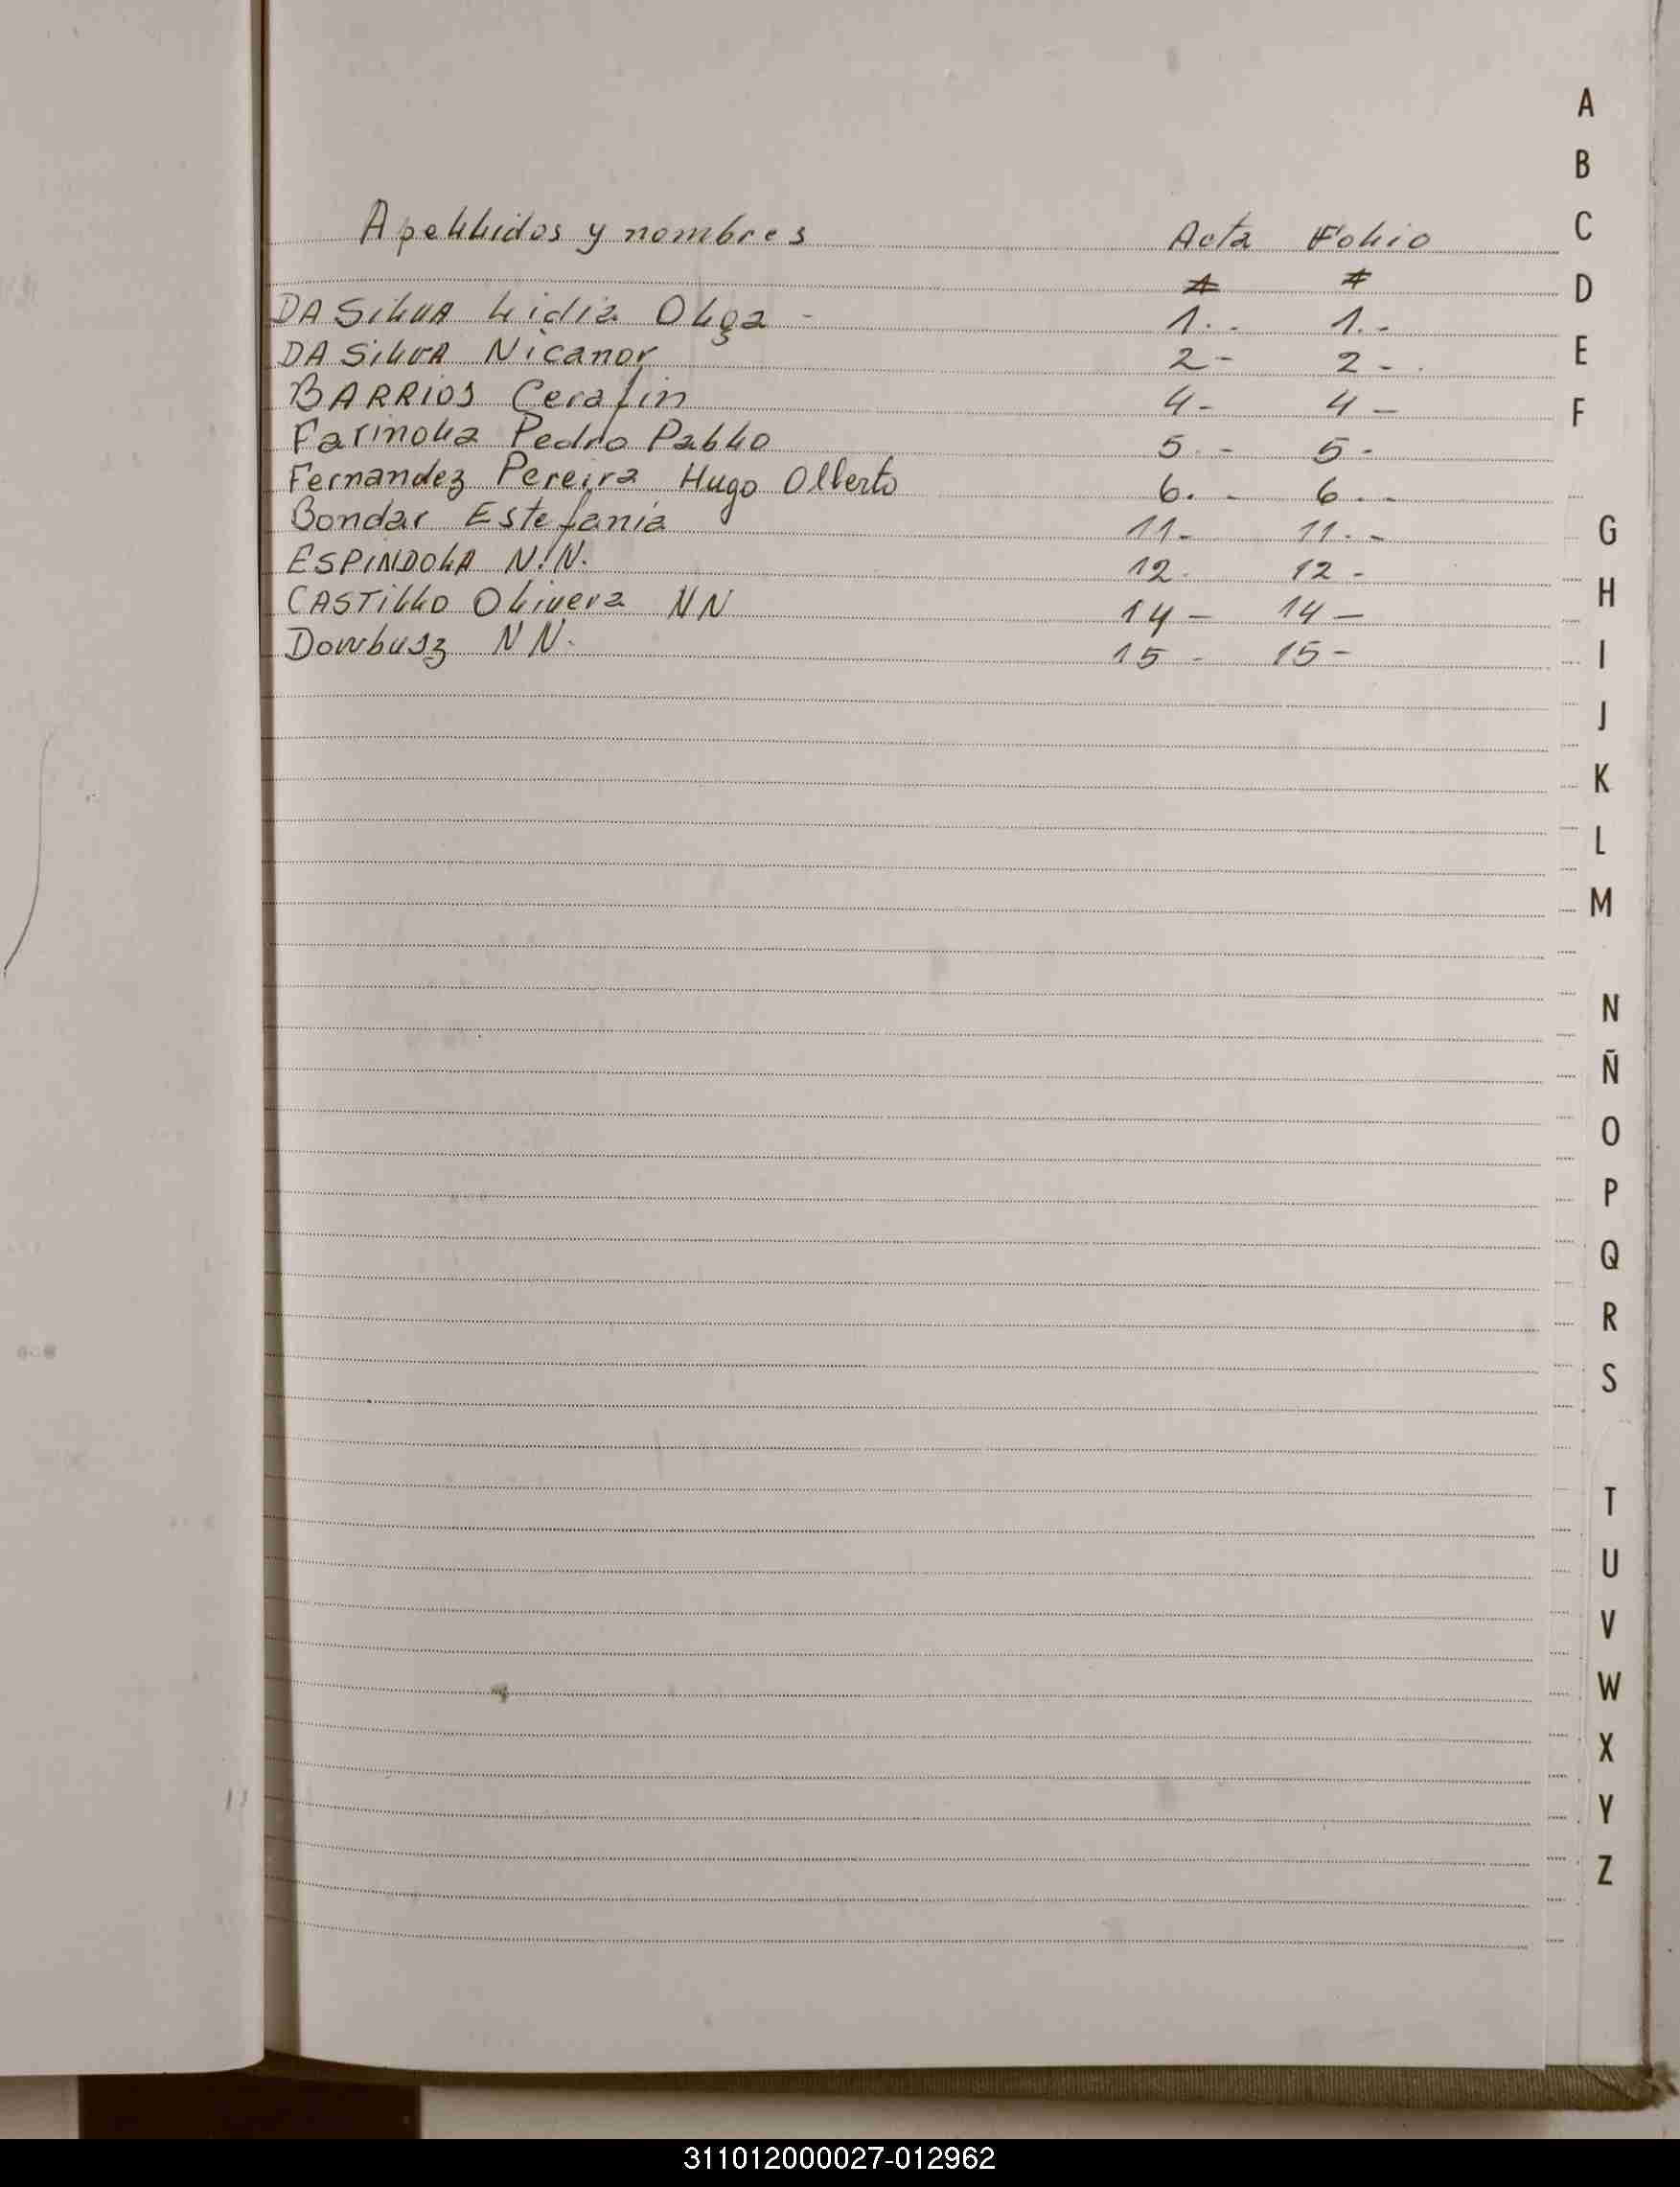 Apellidos y nombres Acta Folio
DA SiLVA Lidia Olga - 1. - 1. -
DA SiLVA Nicanor 2 - 2 -
BARRiOS Cerafin 4 - 4 -
Farinola Pedro Pablo 5 - 5 -
Fernandez Pereira Hugo Olberto 6. - 6. -
Bondar Estefania 11 - 11. -
ESPINDOLA N.N. 12. 12 -
CASTiLLO Olivera NN 14 - 14 -
Dowbusz NN. 15 - 15 -
A
B
C
D
E
F
G
H
I
J
K
L
M
N
Ñ
O
P
Q
R
S
T
U
V
W
X
Y
Z
311012000027-012962